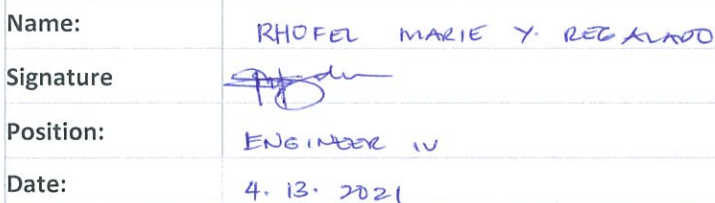 Name: RHOFEL MARIE Y. REGALADO
Signature
Position: ENGINEER IV
Date: 4. 13. 2021